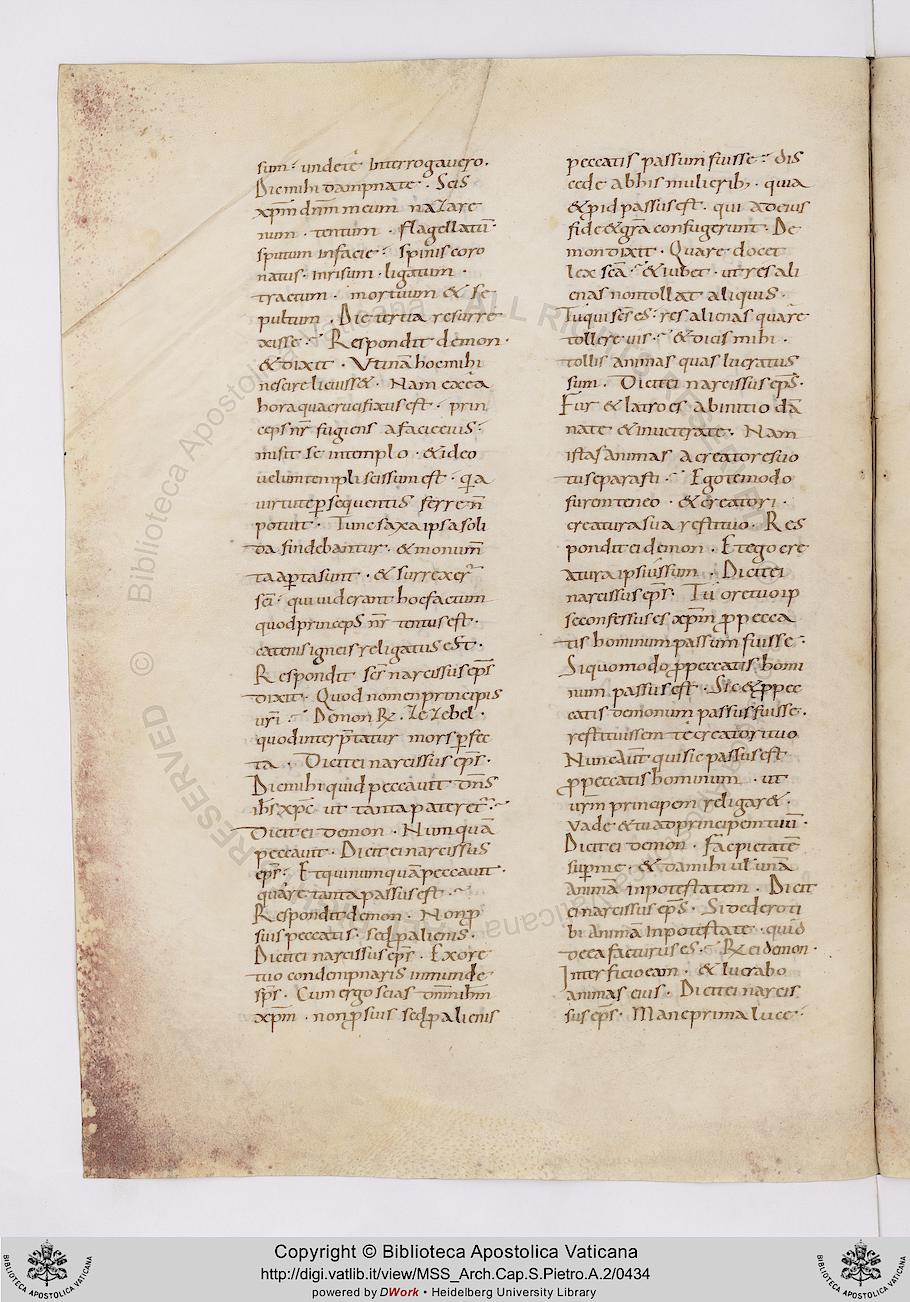 sum · unde te Interrogavero.
Dic mihi dampnate · Scis
xp̄m dn̄m meum naZare
num · tentum · flagellatū ·
sputum in facie · spinis coro
natus · inrisum · ligatum ·
tractum · mortuum & se
pultum · Die tertia resurre
xisse · Respondit demon ·
& dixit · Utinā hoc mihi
nescire licuiss& · Nam ex ea
hora qua crucifixus est · prin
ceps nr̄ fugiens a facie eius ·
misit se in templo · & ideo
uelum templi scissum est · q̄a
uirtutē p̱sequentis ferre n̄
potuit · Tunc saxa ipsa soli
da findebantur · & monum̄
ta ap̱ta sunt · & surrexer̄
sc̄i · qui uiderant hoc factum
quod princeps nr̄ tentus est ·
catenis igneis religatus est ·
Respondit sc̄s narcissus ep̄s
dixit · Quod nomen principis
ur̄i · Demon Ṟ · ZeZebel ·
quod interp̄tatur mors p̱fec
ta · Dicit ei narcissus ep̄s ·
Dic mihi quid peccauit dn̄s
ih̄s xp̄c ut tanta pateret̄ ·
Dicit ei demon · Numquā
peccauit · Dicit ei narcissus
ep̄s · Et qui numquā peccauit ·
quare tanta passus est ·
Respondit demon · Non p̱
suis peccatis · sed p̱ alienis ·
Dicit ei narcissus ep̄s · Ex ore
tuo condempnaris inmunde
sp̄s · Cum ergo scias dn̄m ih̄m
xp̄m · non p̱ suis sed p̱ alienis
peccatis passum fuisse · dis
cede ab his mulierib; · quia
& p̱ id passus est · qui ad eius
fide & gr̄a confugerunt · De
mon dixit · Quare docet
lex sc̄a · & iubet · ut res ali
enas non tollat aliquis ·
Tu qui sc̄s es · res alienas quare
tollere uis · & dicis mihi ·
tollis animas quas lucratus
sum · Dicit ei narcissus ep̄s ·
Fur & latro es ab initio dā
nate & inueterate · Nam
istas animas a creatore suo
tu separasti · Ego te modo
furem teneo · & creatori ·
creatura sua restituo · Res
pondit ei demon · Et ego cre
atura ipsius sum · Dicit ei
narcissus ep̄s · Tu ore tuo ip
se confessus es xp̄m p̱ pecca
tis hominum passum fuisse ·
Si quomodo p̱ peccatis homi
num passus est · Sic & p̱ pec
catis demonum passus fuisse ·
restituissem te creatori tuo
Nunc aūt qui sic passus est
p̱ peccatis hominum · ut
ur̄m principem religar& ·
Vade & tu ad principem tuū ·
Dicit ei demon · Fac pietatē
sup̱ me · & da mihi ul' unā
animā in potestatem · Dicit
ei narcissus ep̄s · Si dedero ti
bi animā in potestate · quid
de ea facturus es · Ṟ ei demon ·
Interficio eam · & lucrabo
animas eius · Dicit ei narcis
sus ep̄s · Mane prima luce ·
Copyright © Biblioteca Apostolica Vaticana
http://digi.vatlib.it/view/MSS_Arch.Cap.S.Pietro.A.2/0434
powered by DWork • Heidelberg University Library
BIBLIOTECA APOSTOLICA VATICANA
BIBLIOTECA APOSTOLICA VATICANA